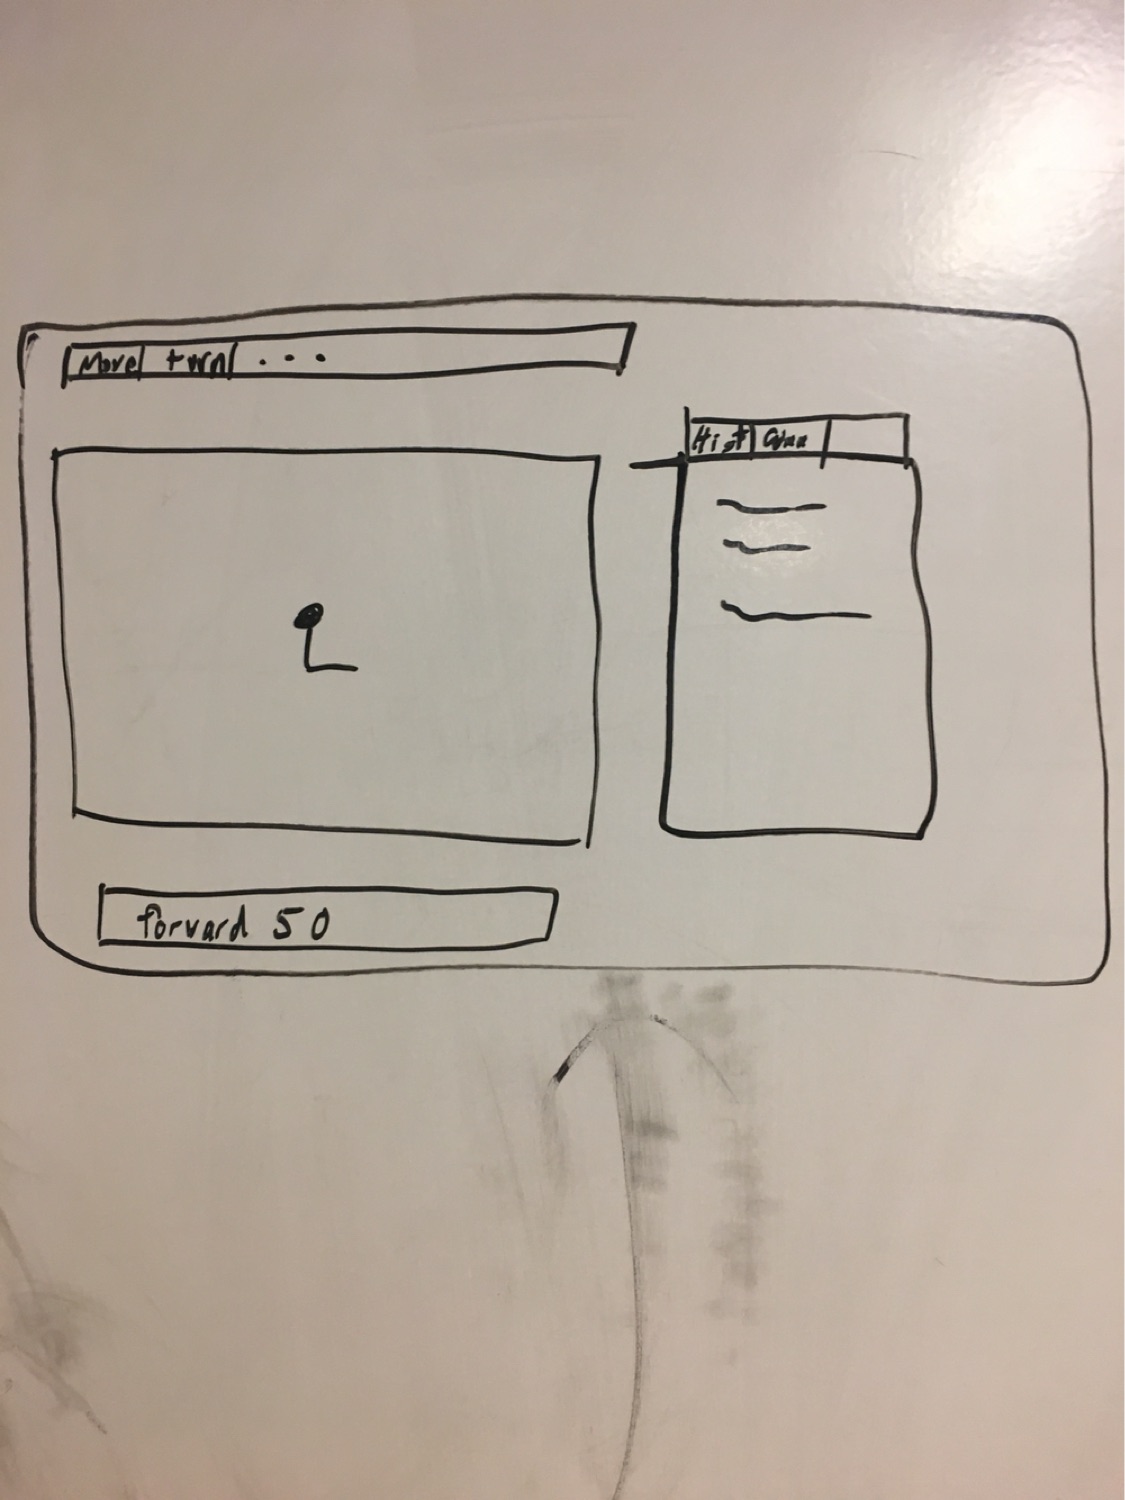 Move turn ...
Hist
forward 50